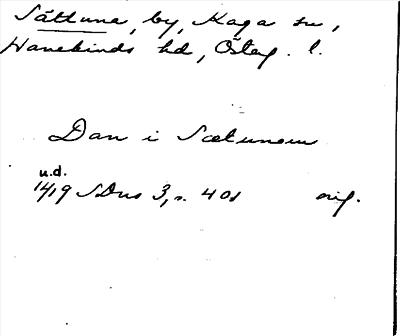 Såttuna, by, Kaga sn,
Hanekinds hd, Östeg. l.
Dan i Sætunom
u.d.
1419 SDns 3, s. 401 orig.